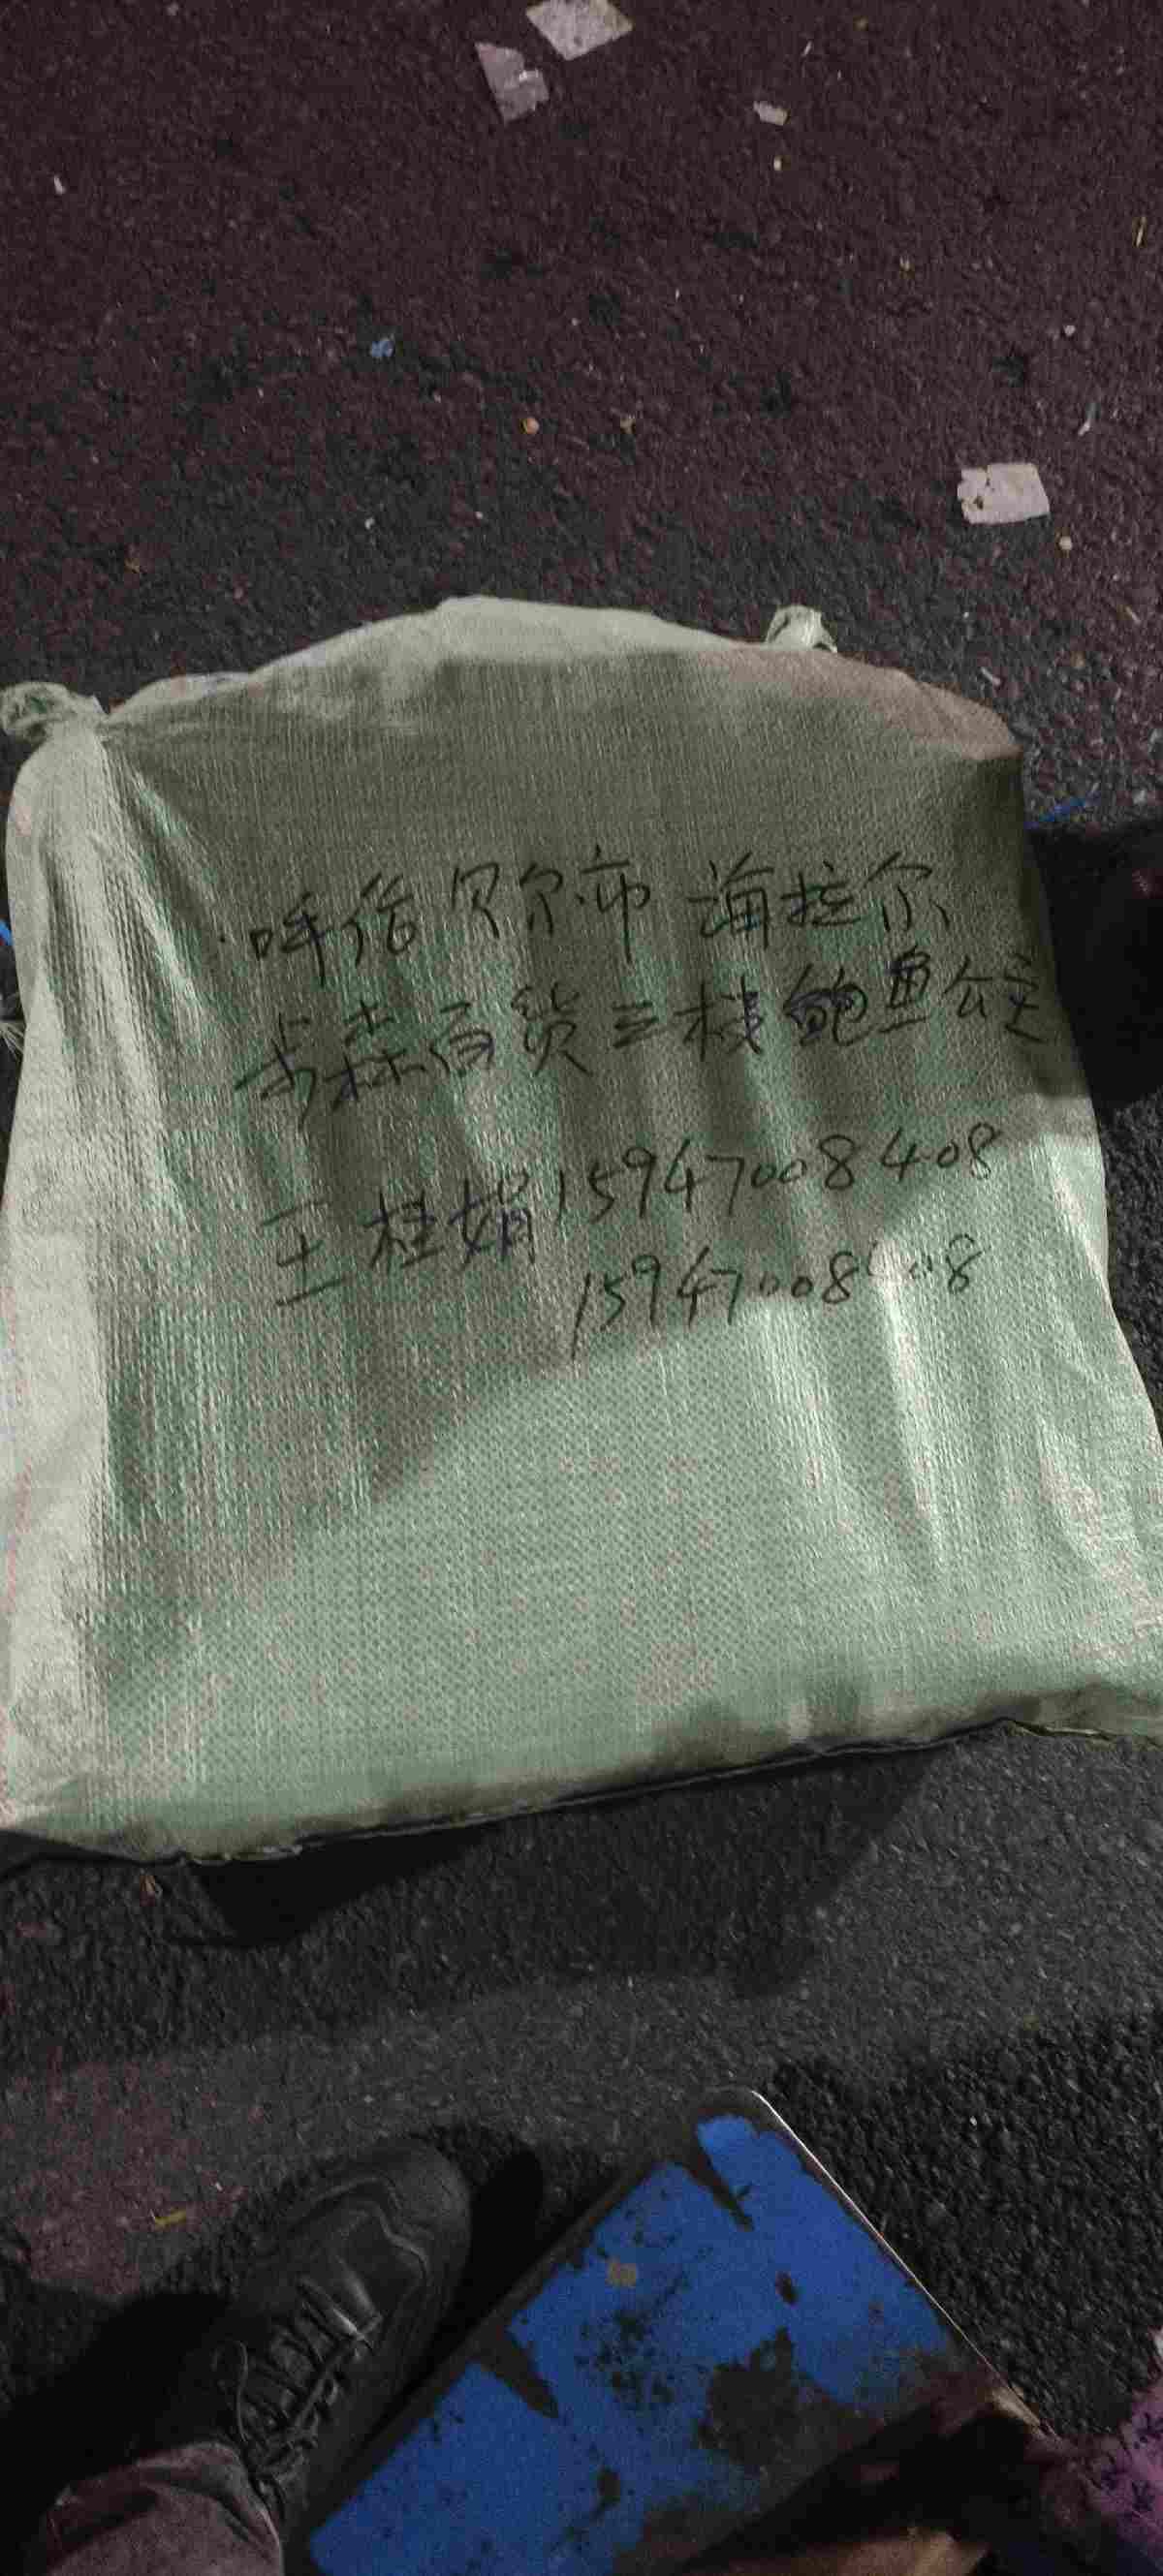 呼伦贝尔市 海拉尔
步森百货三楼鲍鱼公主
王桂娟15947008408
15947008408